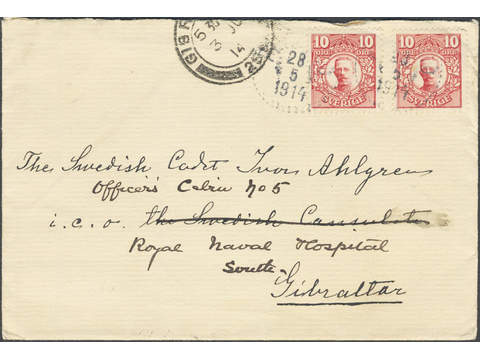 GIB
5 30
3 JU
14
28
5
1914
10 10
ÖRE ÖRE
SVERIGE
10 10
5
1914
SVERIGE
The Swedish Cadet Ivor Ahlgren
Officer's Cabin No 5
i.c.o. the Swedish Consulate
Royal Naval Hospital
South
Gibraltar